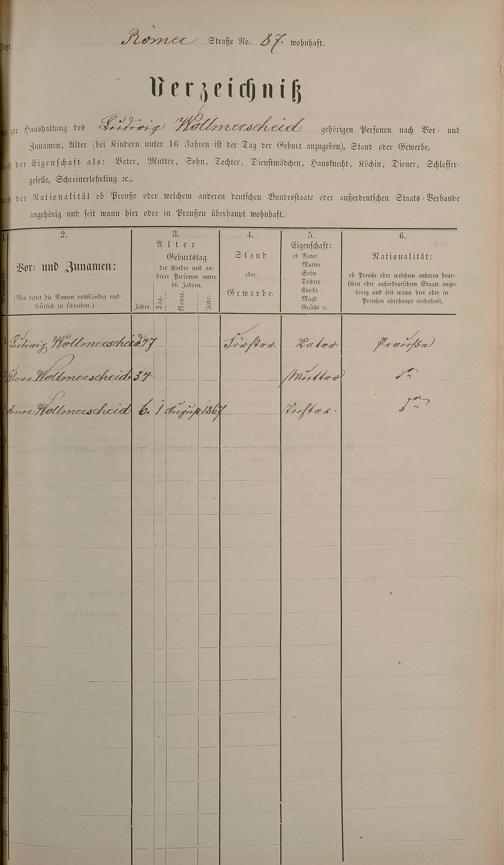 Römer Straße No. 87. wohnhaft.
Verzeichniß
zur Haushaltung des Ludwig Wollmerscheid gehörigen Personen nach Vor- und
Zunamen, Alter (bei Kindern unter 16 Jahren ist der Tag der Geburt anzugeben), Stand oder Gewerbe,
der Eigenschaft als: Vater, Mutter, Sohn, Tochter, Dienstmädchen, Hausknecht, Köchin, Diener, Schlosser-
geselle, Schreinerlehrling ꝛc.,
der Nationalität ob Preuße oder welchem anderen deutschen Bundesstaate oder außerdeutschen Staats-Verbande
angehörig und seit wann hier oder in Preußen überhaupt wohnhaft.
1. 2. 3. 4. 5. 6.
Vor- und Zunamen:
(Man bittet die Namen vollständig und
leserlich zu schreiben.)
Alter
Geburtstag
der Kinder und an-
derer Personen unter
16 Jahren.
Jahre. Tag. Monat. Jahr.
Stand
oder
Gewerbe.
Eigenschaft:
ob Vater
Mutter
Sohn
Tochter
Knecht
Magd
Geselle ꝛc.
Nationalität:
ob Preuße oder welchem anderen deut-
schen oder außerdeutschen Staate ange-
hörig und seit wann hier oder in
Preußen überhaupt wohnhaft.
Ludwig Wollmerscheid 47 Förster Vater Preuße
Wollmerscheid 34 Mutter do
Anna Wollmerscheid 6. 1 August 1867 Tochter do